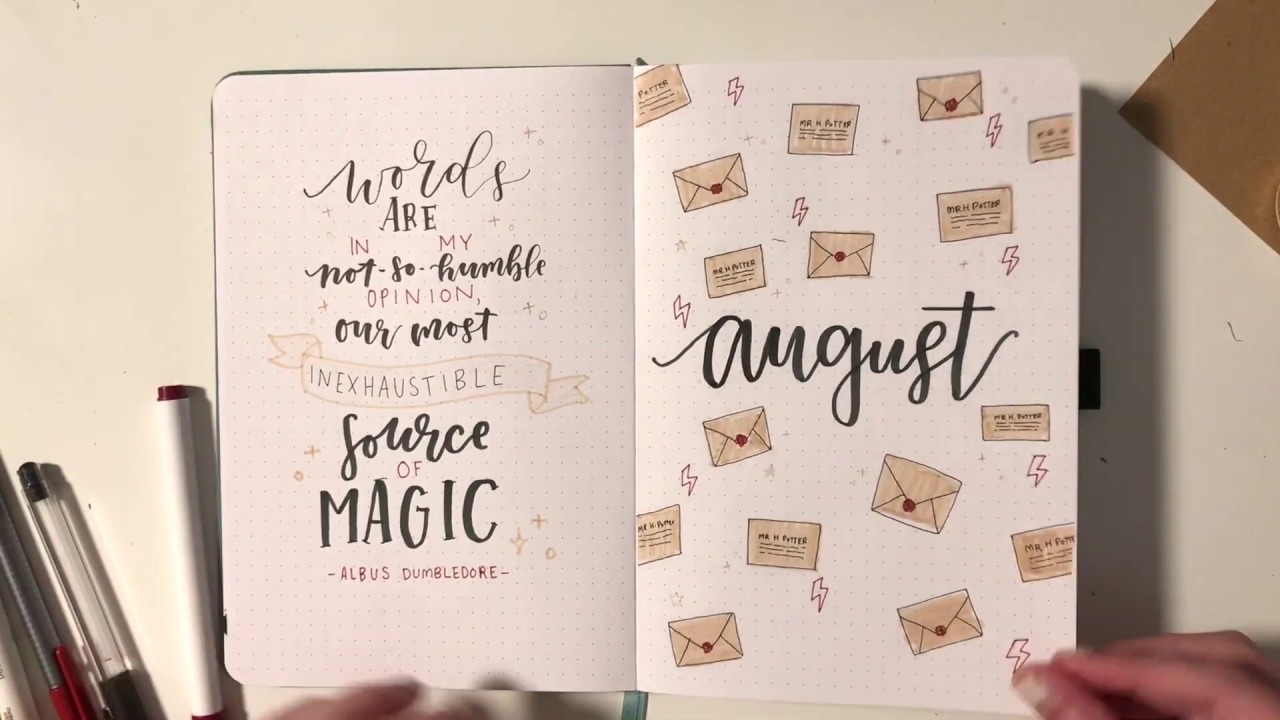 words
ARE
IN MY
not-so-humble
OPINION,
our most
INEXHAUSTIBLE
source
OF
MAGIC
-ALBUS DUMBLEDORE-
POTTER
MR H POTTER
MR H POTTER
MR H POTTER
august
MR H POTTER
MR H. POTTER
MR H POTTER
MR H POTTE